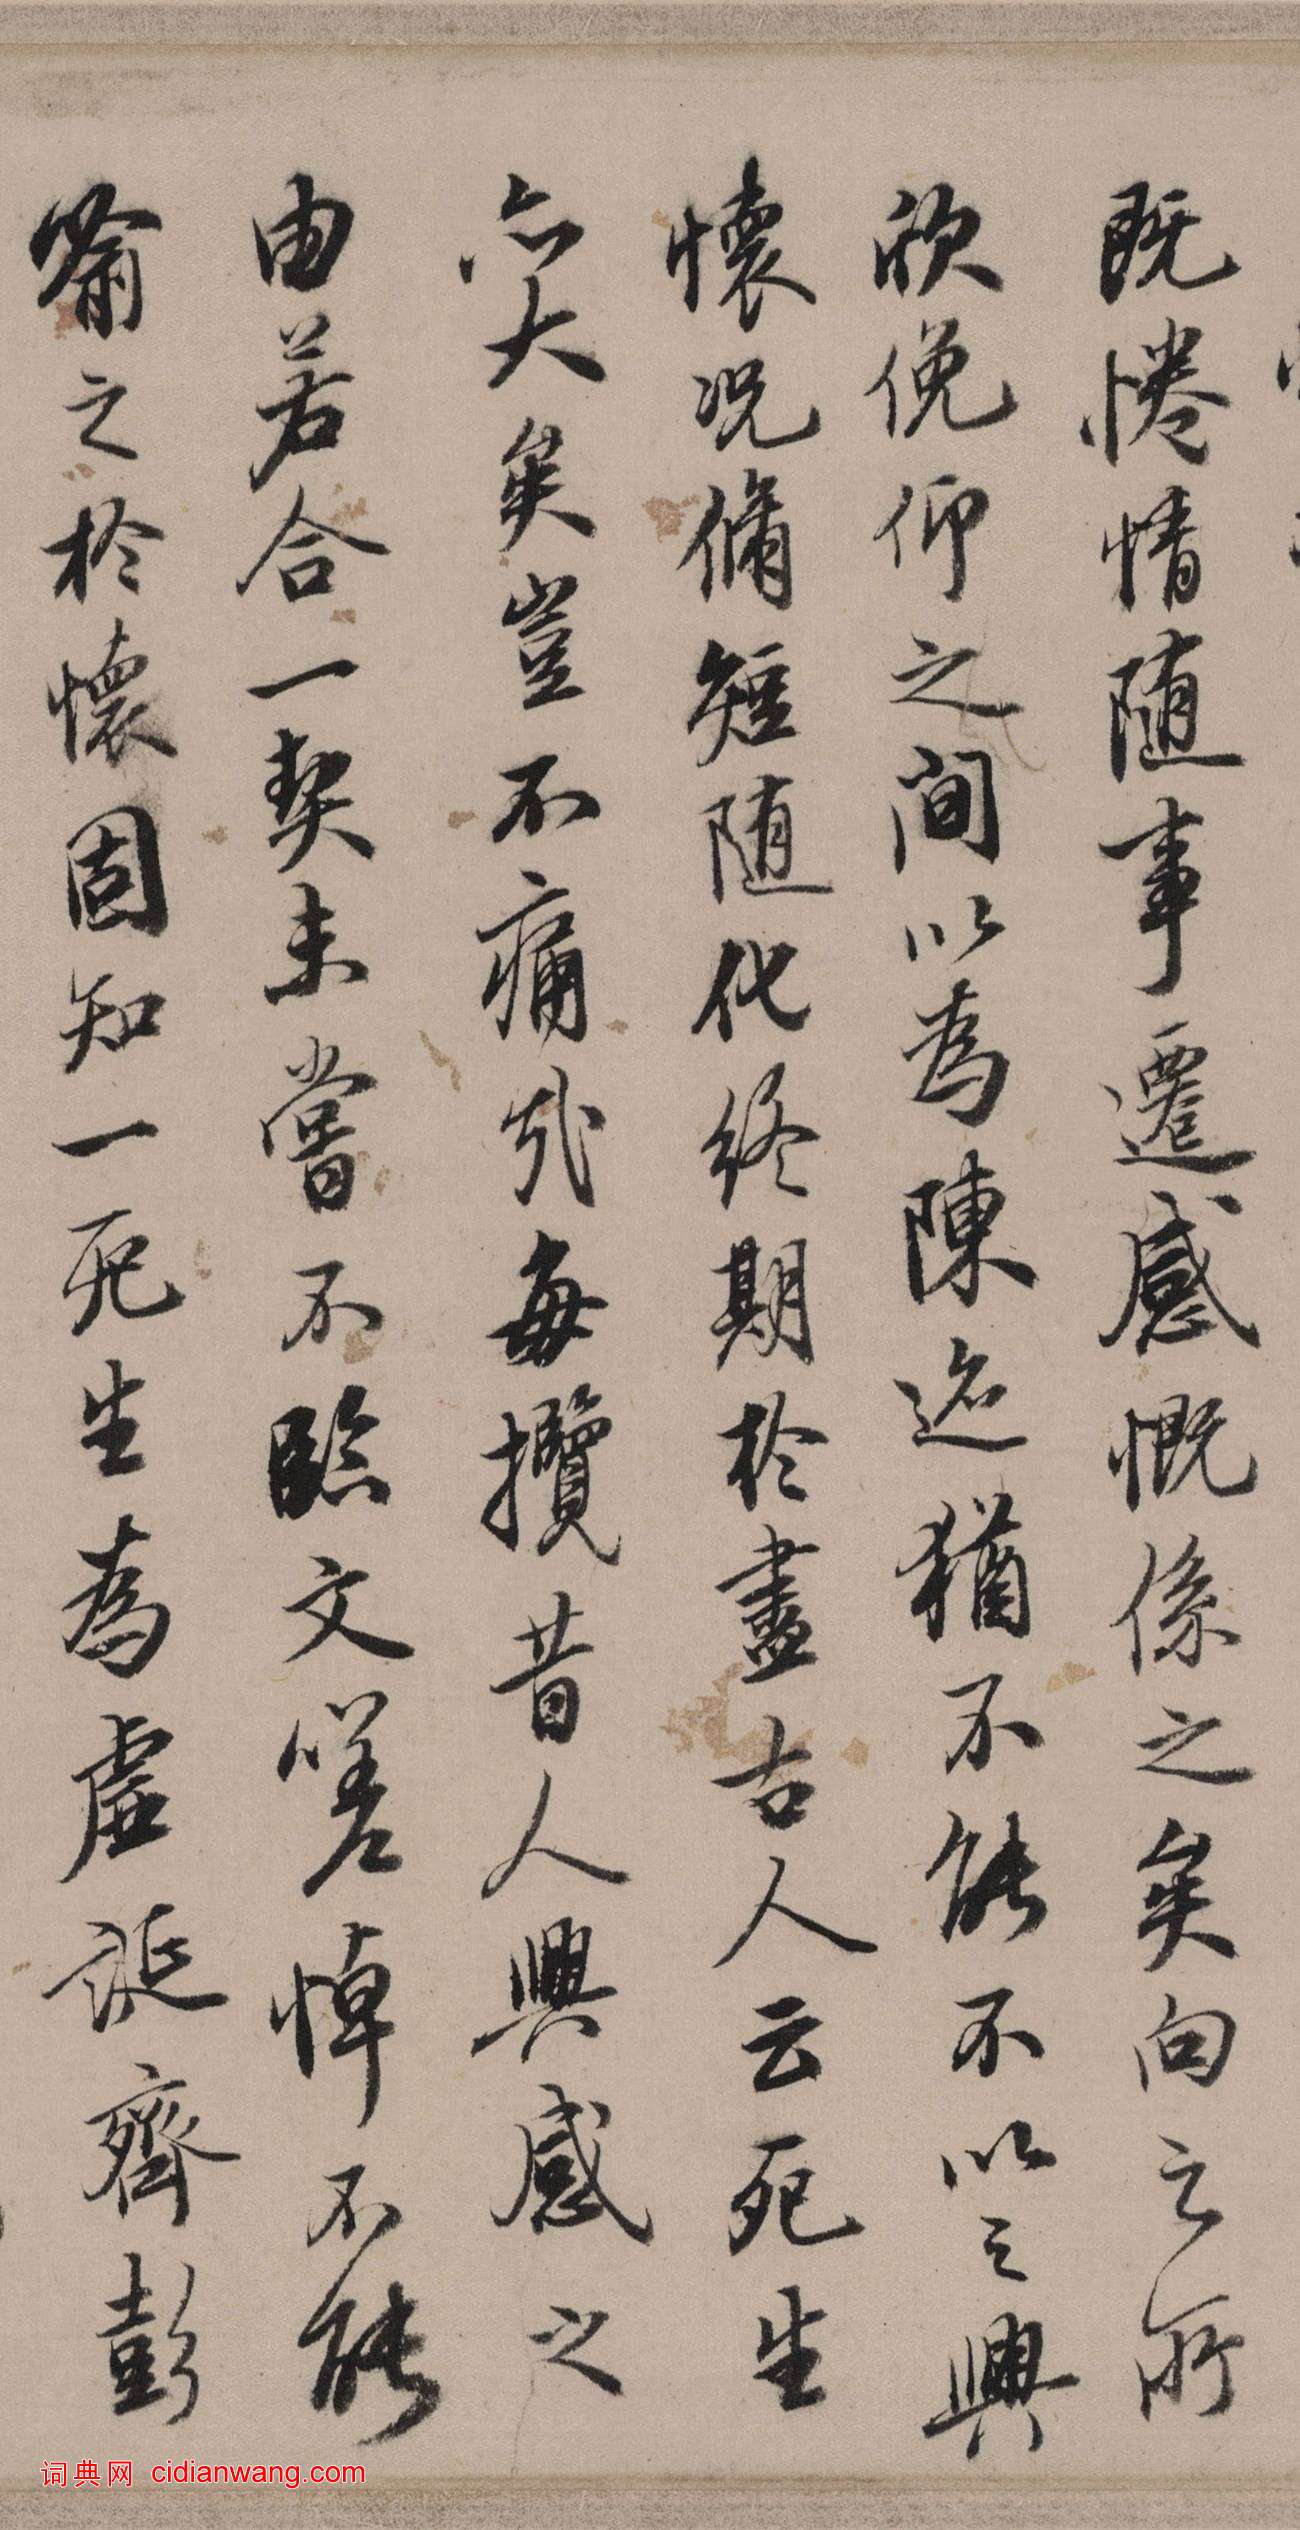 既惓情随事遷感慨係之矣向之所
欣俛仰之間以為陳迹猶不能不以之興
懷况脩短随化終期於盡古人云死生
亦大矣豈不痛哉每攬昔人興感之
由若合一契未嘗不臨文嗟悼不能
喻之於懷固知一死生為虚誕齊彭
词典网 cidianwang.com